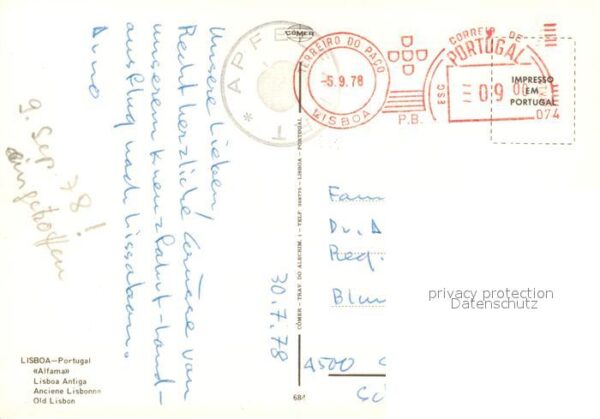 Unsere Lieben,
Recht herzliche Grüsse von
unserem Kreuzfahrt-Land-
ausflug nach Lissabon.
Arno
9. Sep. 78!
eingetroffen
30.7.78
LISBOA—Portugal
«Alfama»
Lisboa Antiga
Anciene Lisbonne
Old Lisbon
CÓMER
CÓMER - TRAV. DO ALECRIM, 1 - TELF - LISBOA - PORTUGAL
684
* APF
T
TERREIRO DO PAÇO
-5.9.78
LISBOA
P.B.
CORREIO DE
PORTUGAL
ESC
09 00
074
IMPRESSO
EM
PORTUGAL
Fam
Dr. A
Reg.
Blum
4500
privacy protection
Datenschutz